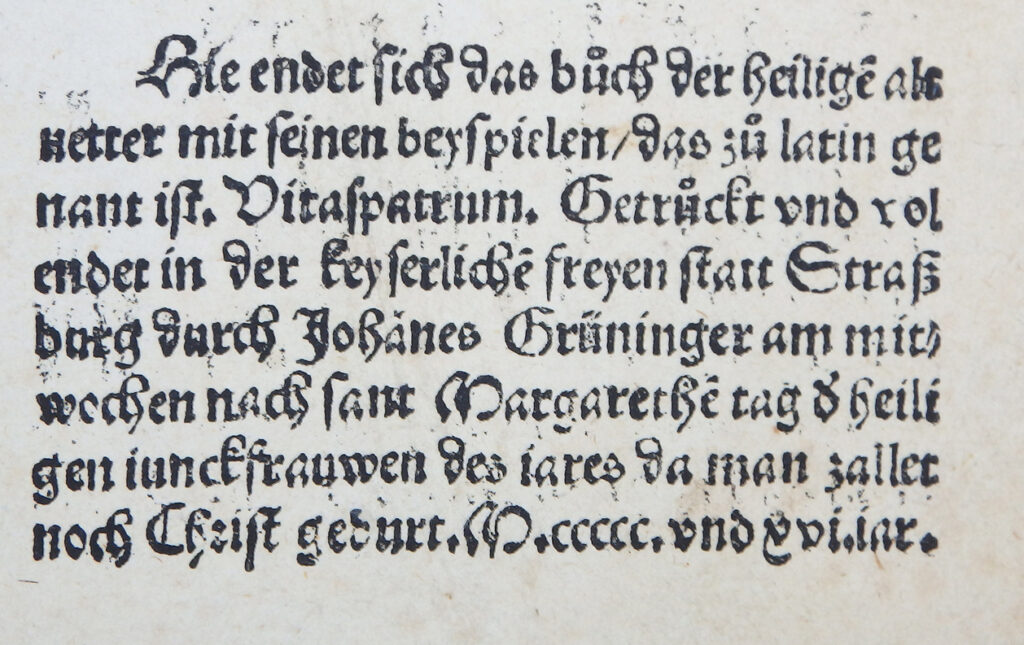 Hie endet sich das bůch der heiligē alt
uetter mit seinen beyspielen/das zů latin ge
nant ist. Vitaspatrum. Getrůckt vnd vol
endet in der keyserlichē freyen statt Straß
burg durch Johānes Grüninger am mit⸗
wochen nach sant Margarethē tag d̕ heili
gen iunckfrauwen des iares da man zallet
noch Christ geburt. M.ccccc. vnd xvi.iar.